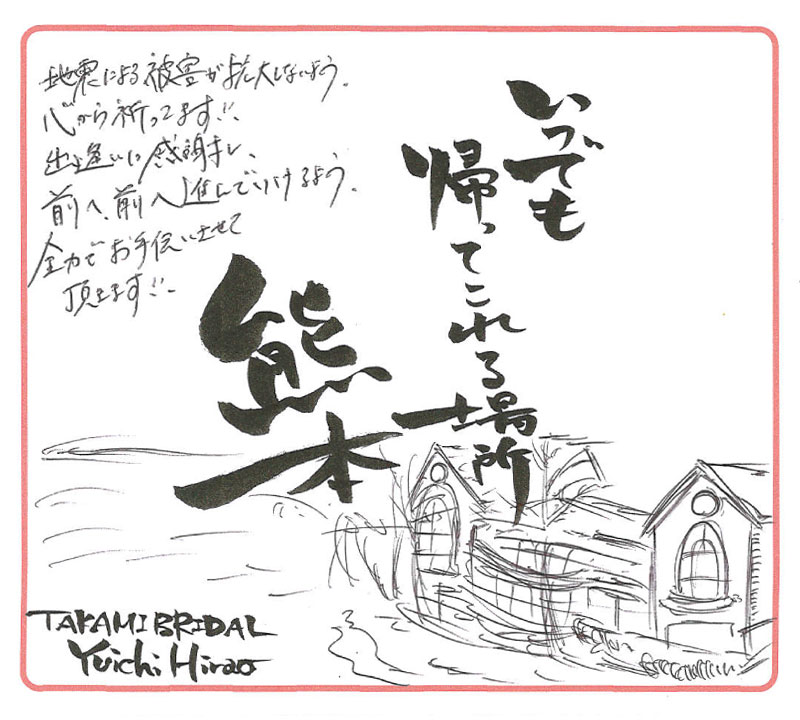 地震による被害が拡大しないよう。
心から祈ってます!!
出逢いに感謝し、
前へ、前へ進んでいけるよう。
全力でお手伝いさせて
頂きます!!
いつでも
帰ってこれる場所
熊本
TAKAMI BRIDAL
Yuichi Hirao